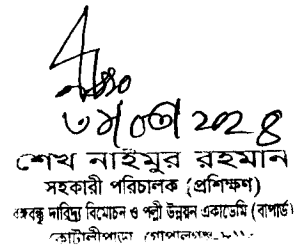 শেখ নাইমুর রহমান
সহকারী পরিচালক (প্রশিক্ষণ)
বঙ্গবন্ধু দারিদ্র্য বিমোচন ও পল্লী উন্নয়ন একাডেমি (বাপার্ড)
কোটালীপাড়া গোপালগঞ্জ